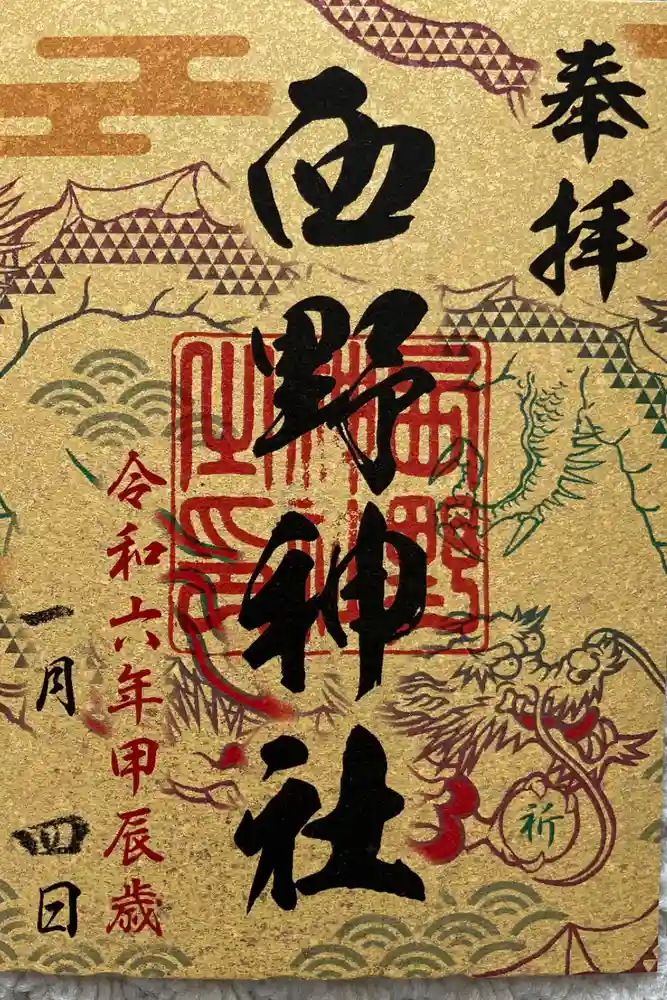 奉拝
西野神社
西野神社之印
祈
令和六年甲辰歳
一月四日